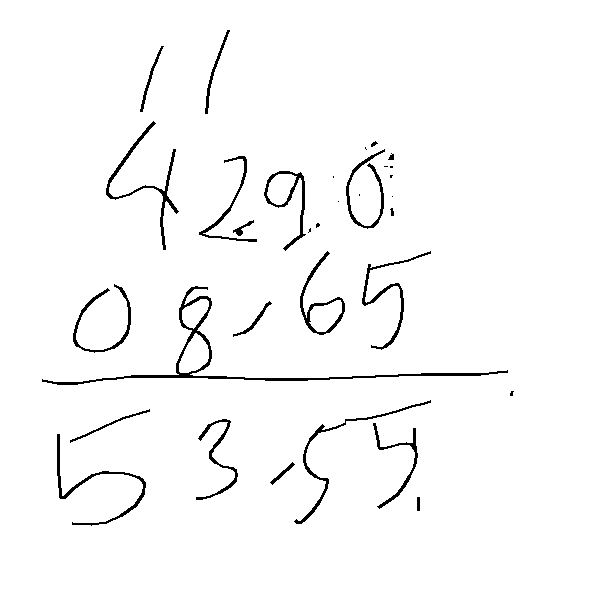 1 1
42.90
08,65
53,55